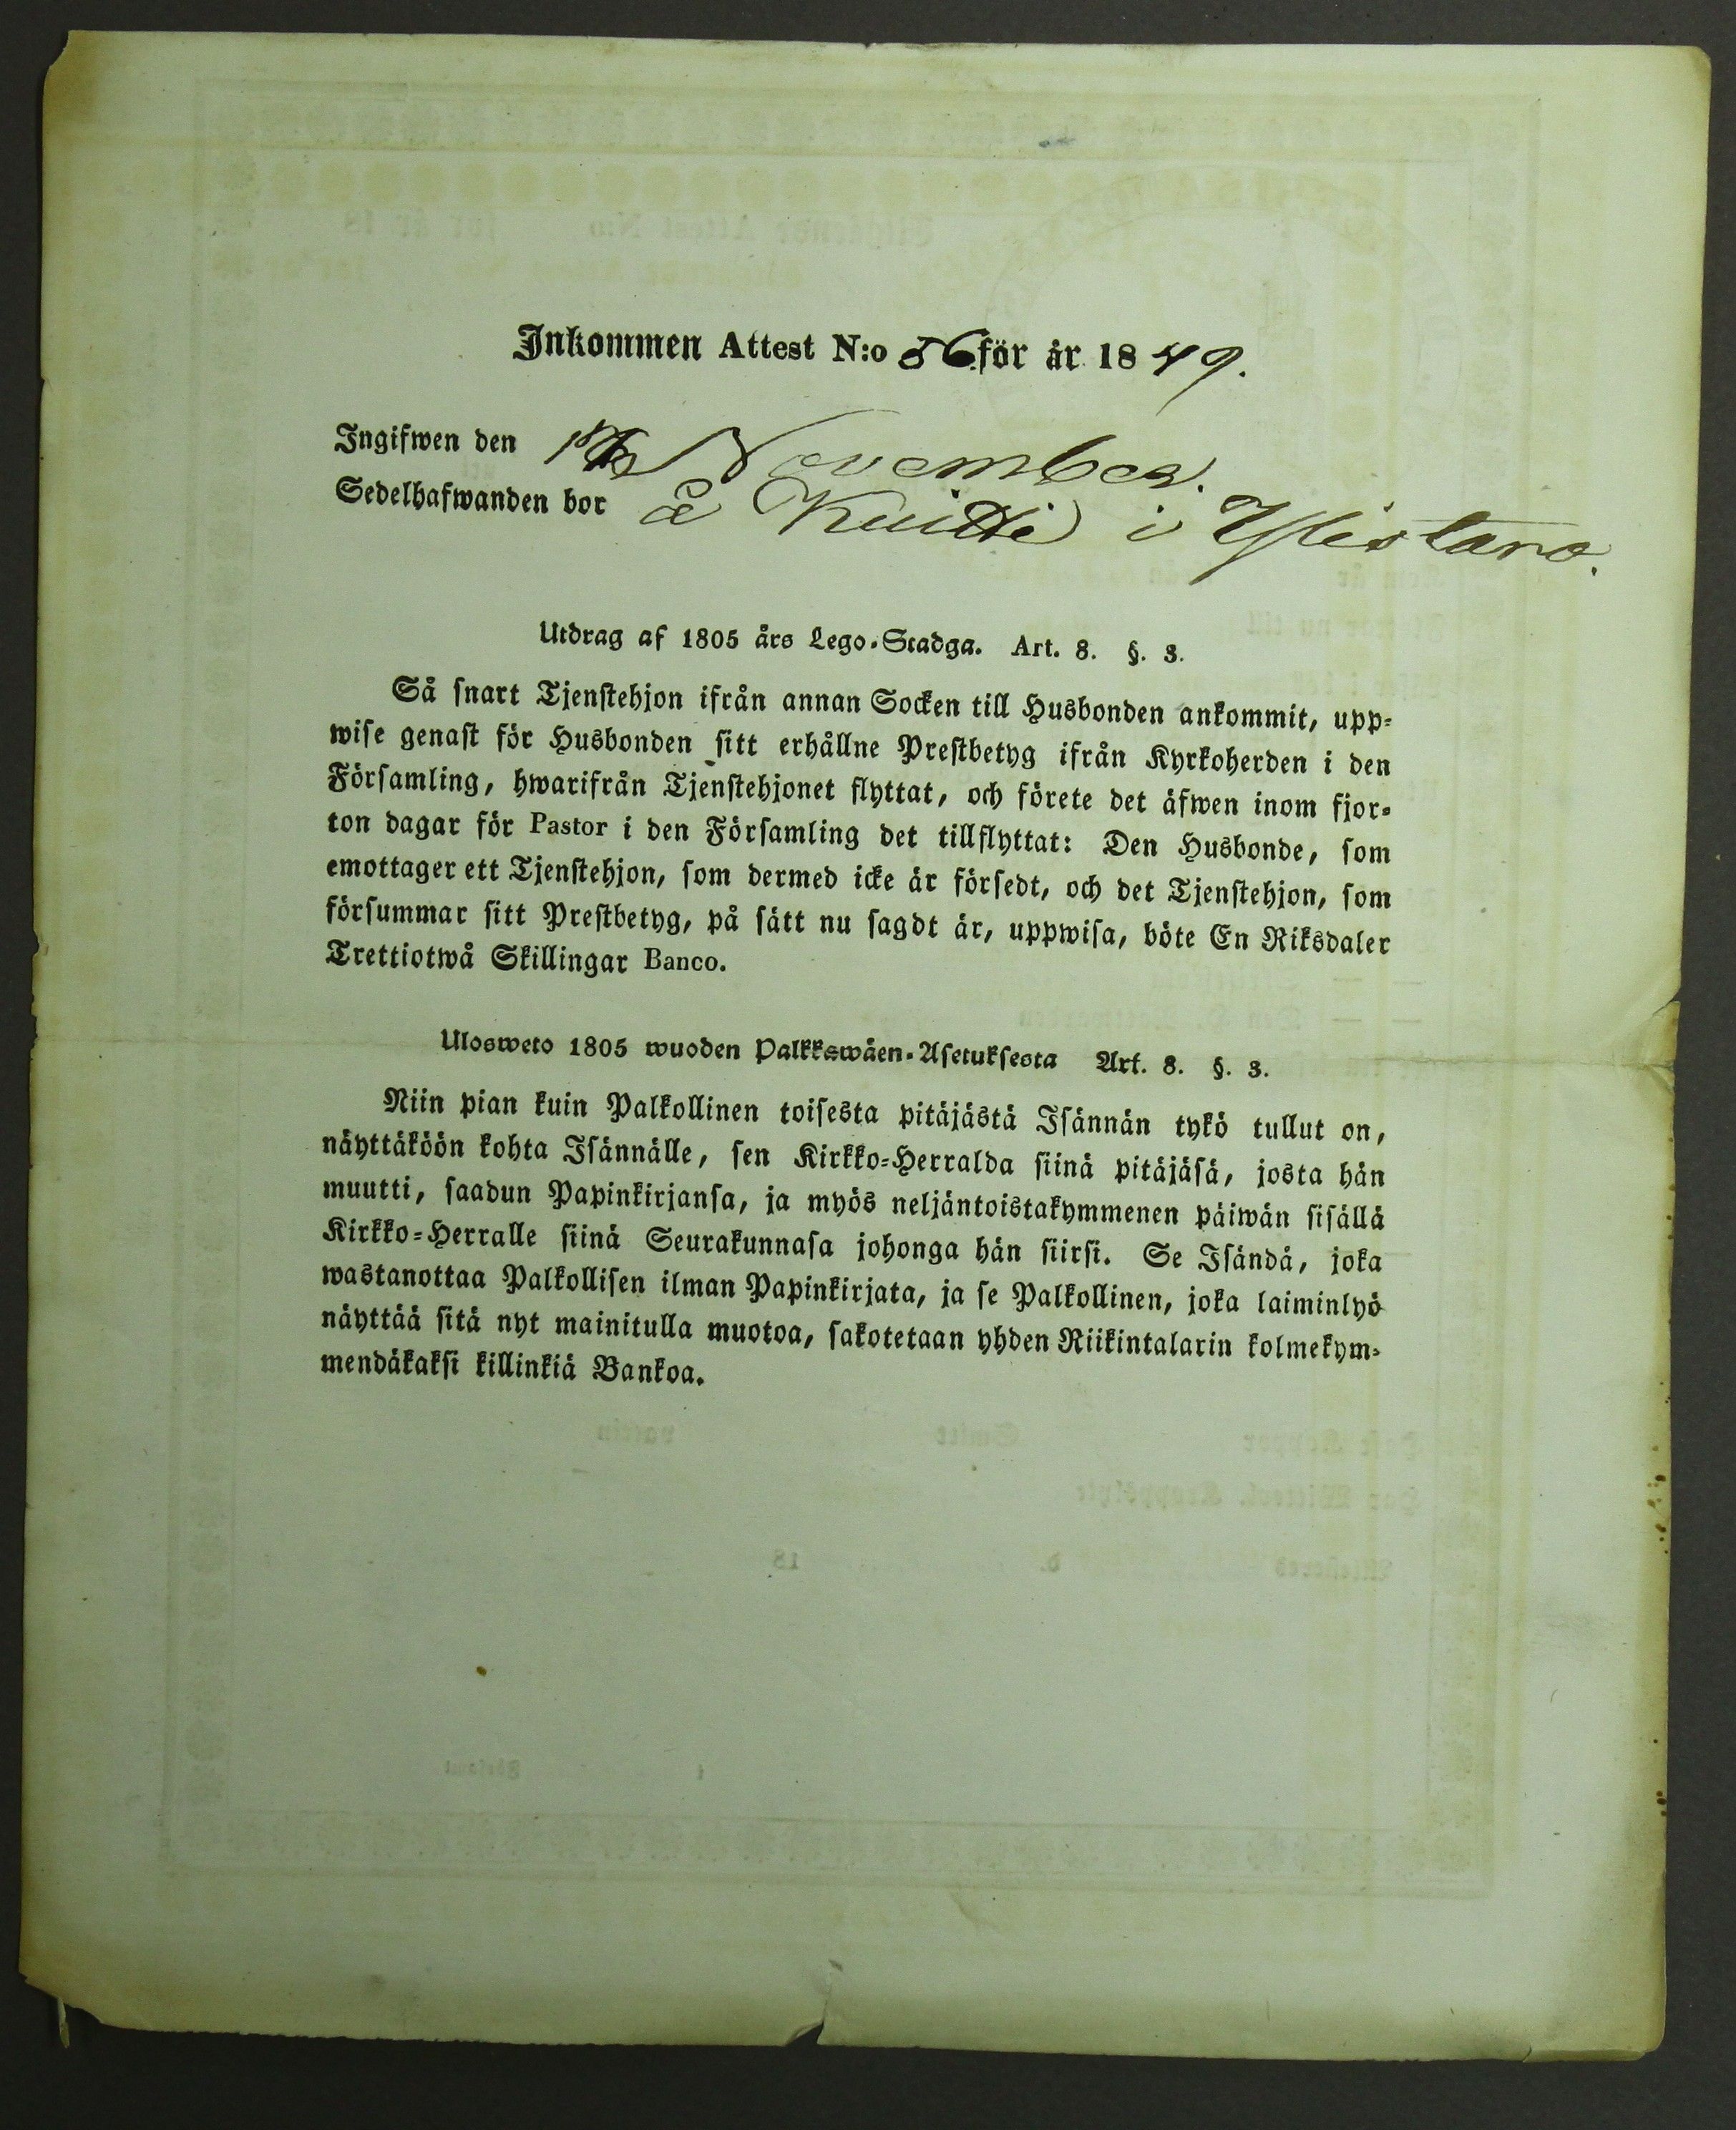 Inkommen Attest N:o 56 för år 1849.
Ingifwen den November.
Sedelhafwanden bor å i Ylistaro.
Utdrag af 1805 års Lego-Stadga. Art. 8. §. 3.
Så snart Tjenstehjon ifrån annan Socken till Husbonden ankommit, upp-
wise genast för Husbonden sitt erhållne Prestbetyg ifrån Kyrkoherden i den
Församling, hwarifrån Tjenstehjonet flyttat, och förete det äfwen inom fjor-
ton dagar för Pastor i den Församling det tillflyttat: Den Husbonde, som
emottager ett Tjenstehjon, som dermed icke är försedt, och det Tjenstehjon, som
försummar sitt Prestbetyg, på sätt nu sagdt är, uppwisa, böte En Riksdaler
Trettiotwå Skillingar Banco.
Ulosweto 1805 wuoden Palkkawäen-Asetuksesta Art. 8. §. 3.
Niin pian kuin Palkollinen toisesta pitäjästä Isännän tykö tullut on,
näyttäköön kohta Isännälle, sen Kirkko-Herralda siinä pitäjäsä, josta hän
muutti, saadun Papinkirjansa, ja myös neljäntoistakymmenen päiwän sisällä
Kirkko-Herralle siinä Seurakunnasa johonga hän siirsi. Se Isändä, joka
wastanottaa Palkollisen ilman Papinkirjata, ja se Palkollinen, joka laiminlyö
näyttää sitä nyt mainitulla muotoa, sakotetaan yhden Riikintalarin kolmekym-
mendäkaksi killinkiä Bankoa.